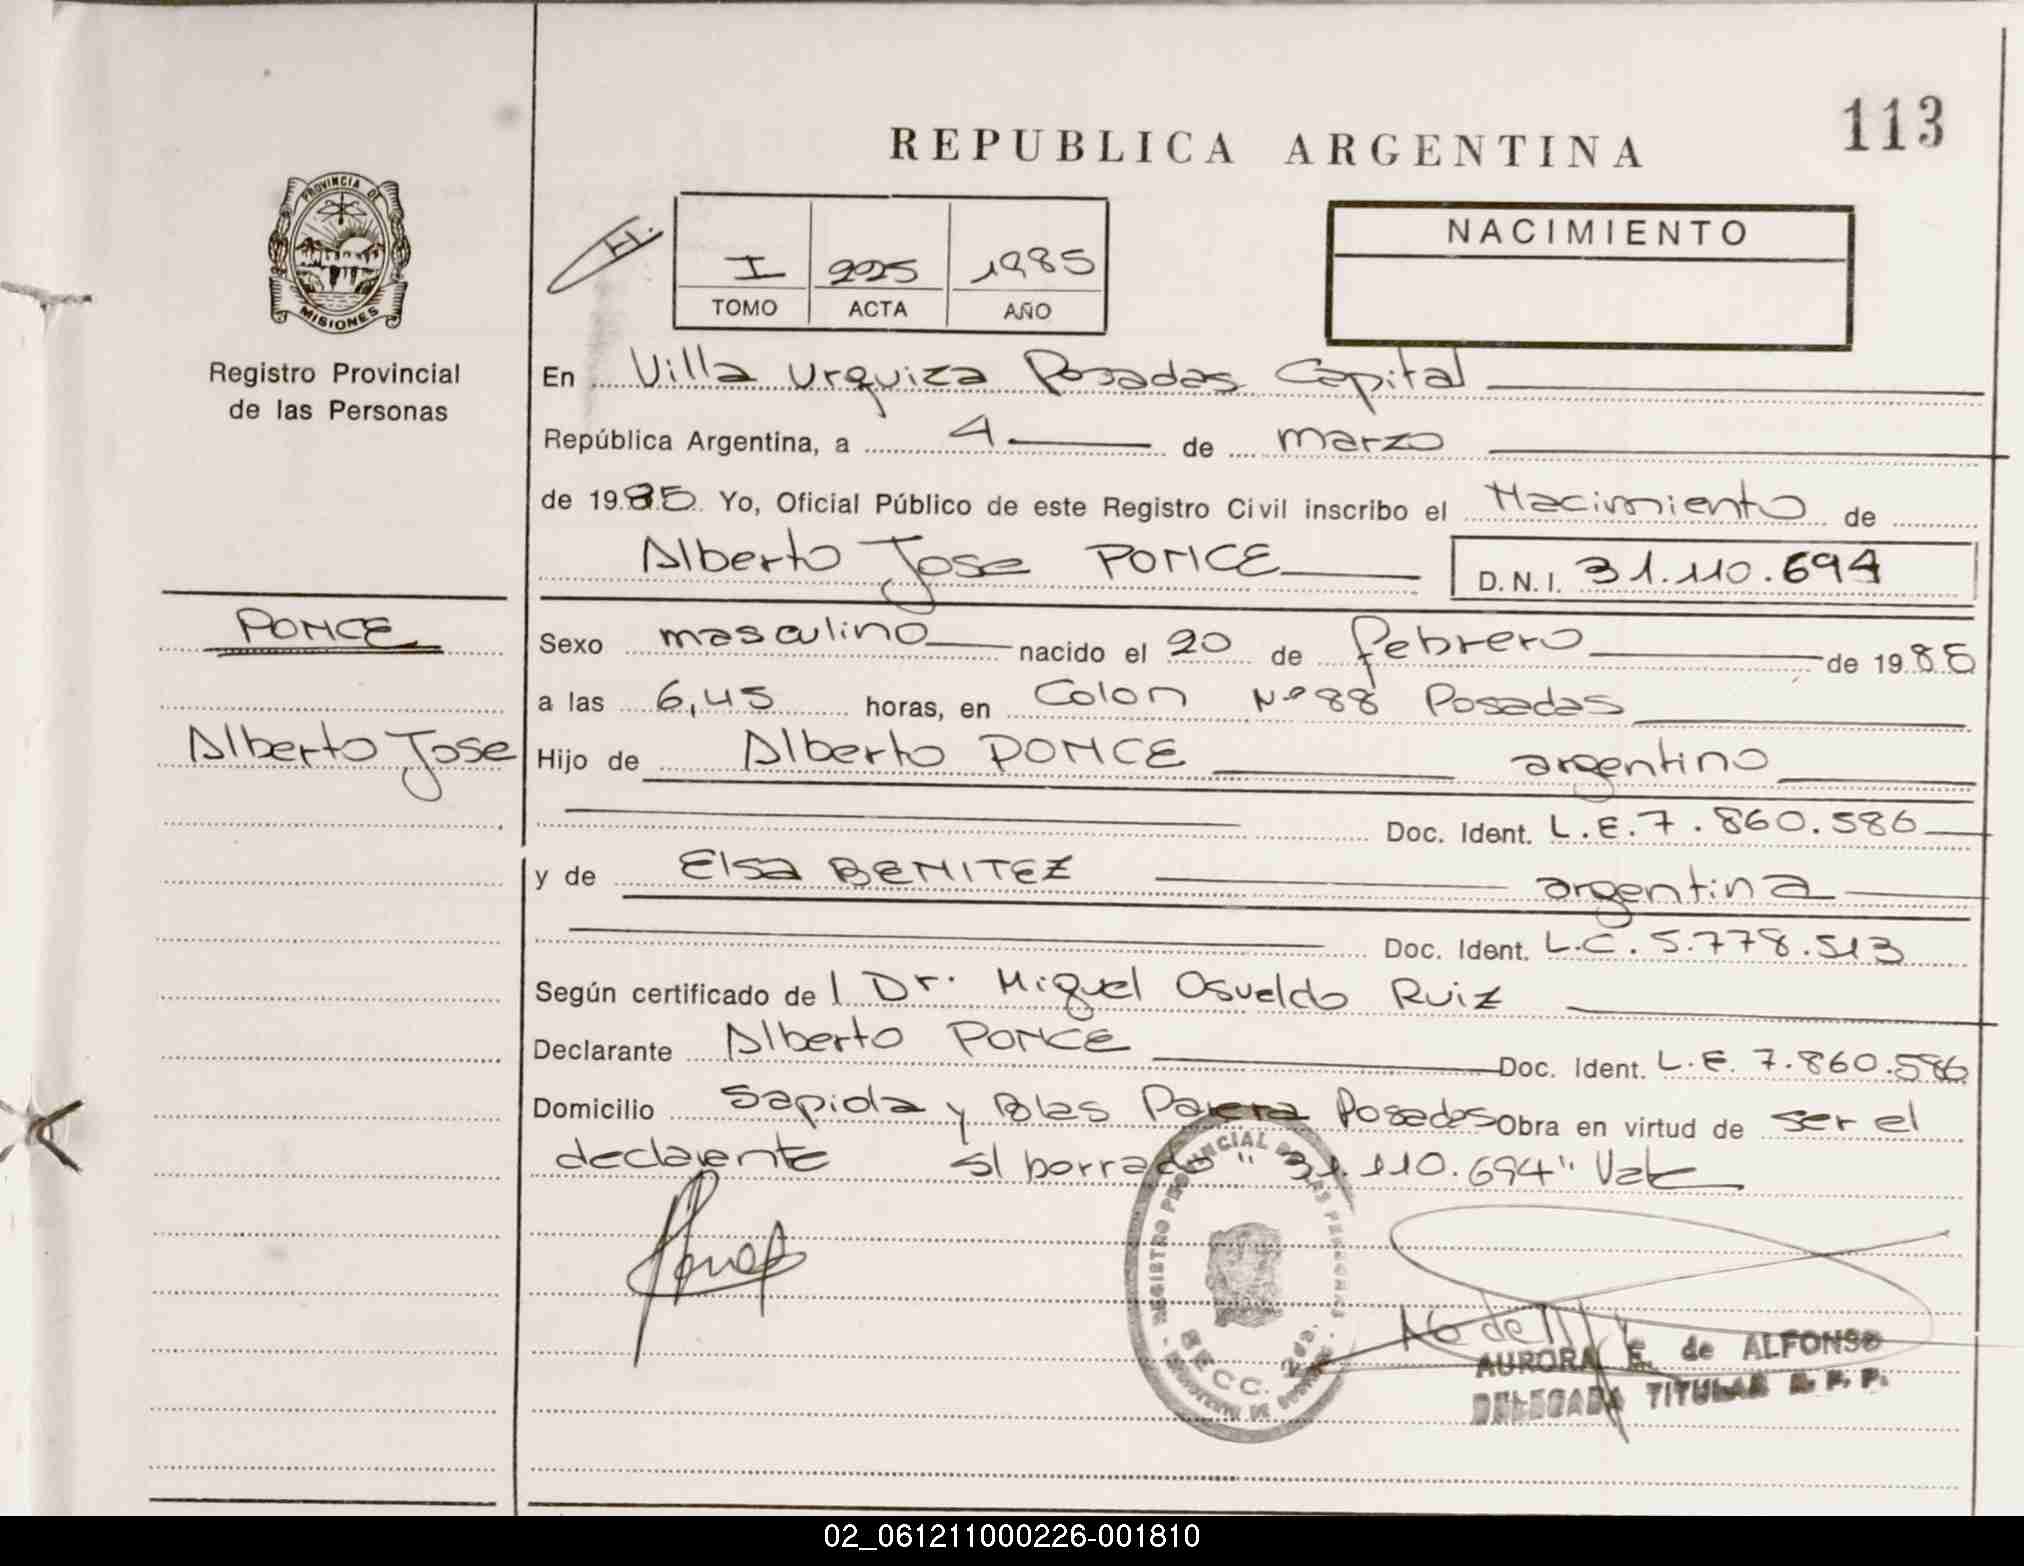 113
REPUBLICA ARGENTINA
PROVINCIA DE
MISIONES
Registro Provincial
de las Personas
I 225 1985
TOMO ACTA AÑO
NACIMIENTO
En Villa Urquiza Posadas Capital
República Argentina, a 4 de marzo
de 1985. Yo, Oficial Público de este Registro Civil inscribo el Nacimiento de
Alberto Jose PONCE D.N.I. 31.110.694
PONCE
Alberto Jose
Sexo masculino nacido el 20 de febrero de 1985
a las 6,45 horas, en Colon Nº 88 Posadas
Hijo de Alberto PONCE argentino
Doc. Ident. L.E. 7.860.586
y de Elsa BENITEZ argentina
Doc. Ident. L.C. 5.778.513
Según certificado del Dr. Miguel Osvaldo Ruiz
Declarante Alberto PONCE Doc. Ident. L.E. 7.860.586
Domicilio Sapiola y Blas Parera Posadas Obra en virtud de ser el
declarante S/ borrado "31.110.694" Vale
REGISTRO PROVINCIAL DE LAS PERSONAS
SECC. 2da.
AURORA E. de ALFONSO
DELEGADA TITULAR R. P. P.
02_061211000226-001810